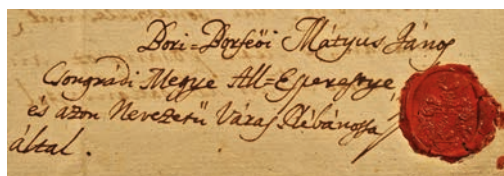 Dori=Dorfeői Mátyus János
Csongrádi Megye All=Esperestye
és azon Nevezetű Város Plébánossa
által.